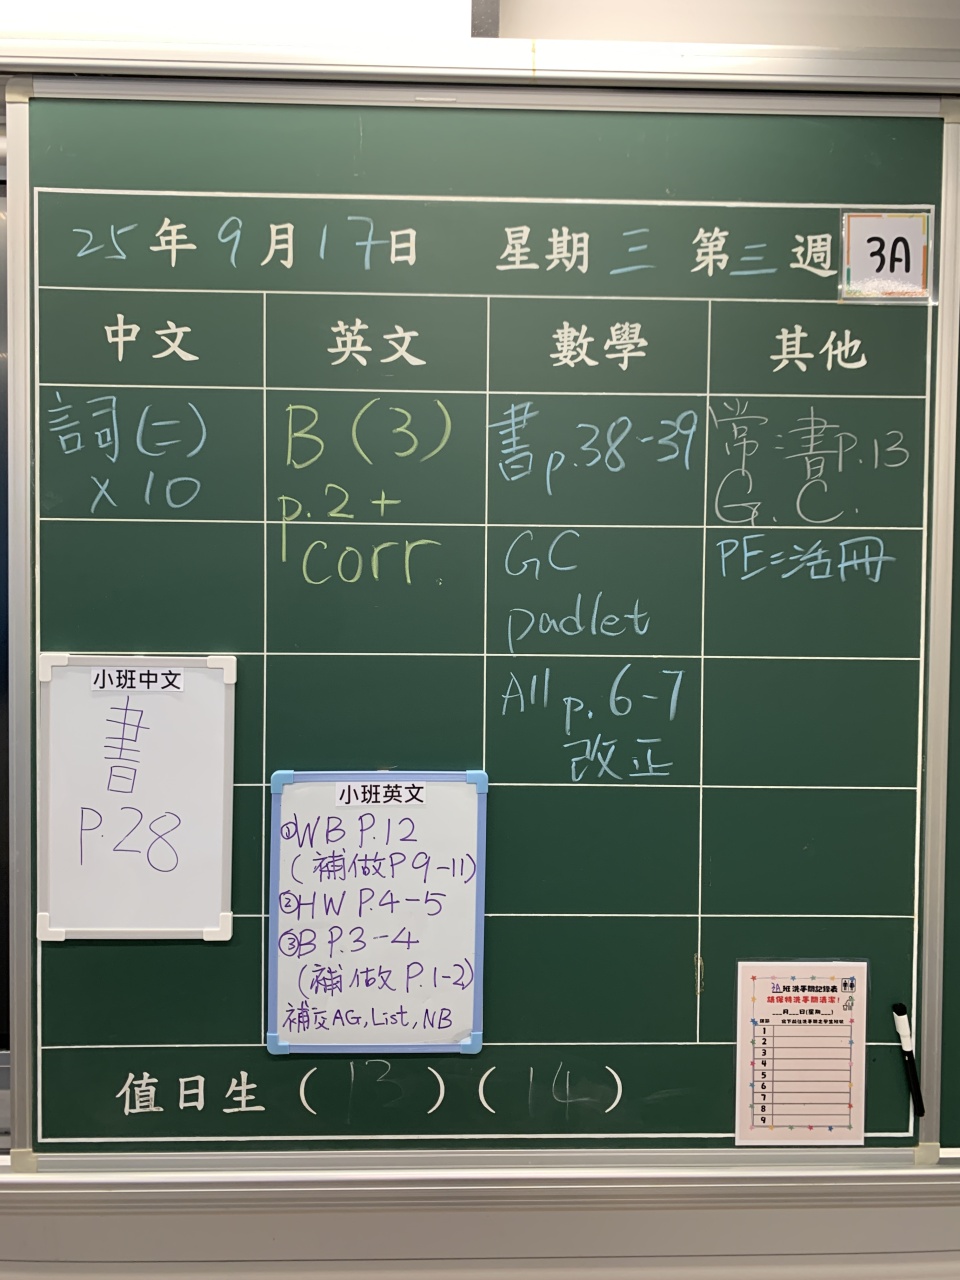 25年9月17日 星期三 第三週 3A
中文 英文 數學 其他
詞(二)
x10
B (3)
p.2 +
corr.
書p.38-39
GC
padlet
All p.6-7
改正
常:書p.13
G.C.
PE:活冊
小班中文
書
P.28
小班英文
①WB P.12
(補做P9-11)
②HW P.4-5
③B P.3-4
(補做 P.1-2)
補交AG, List, NB
3A班洗手間記錄表
請保持洗手間清潔!
___月___日(星期___)
1
2
3
4
5
6
7
8
9
值日生 (13) (14)